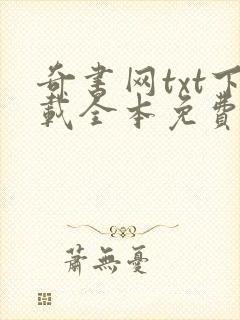 奇书网txt下
载全本免費
蕭無憂